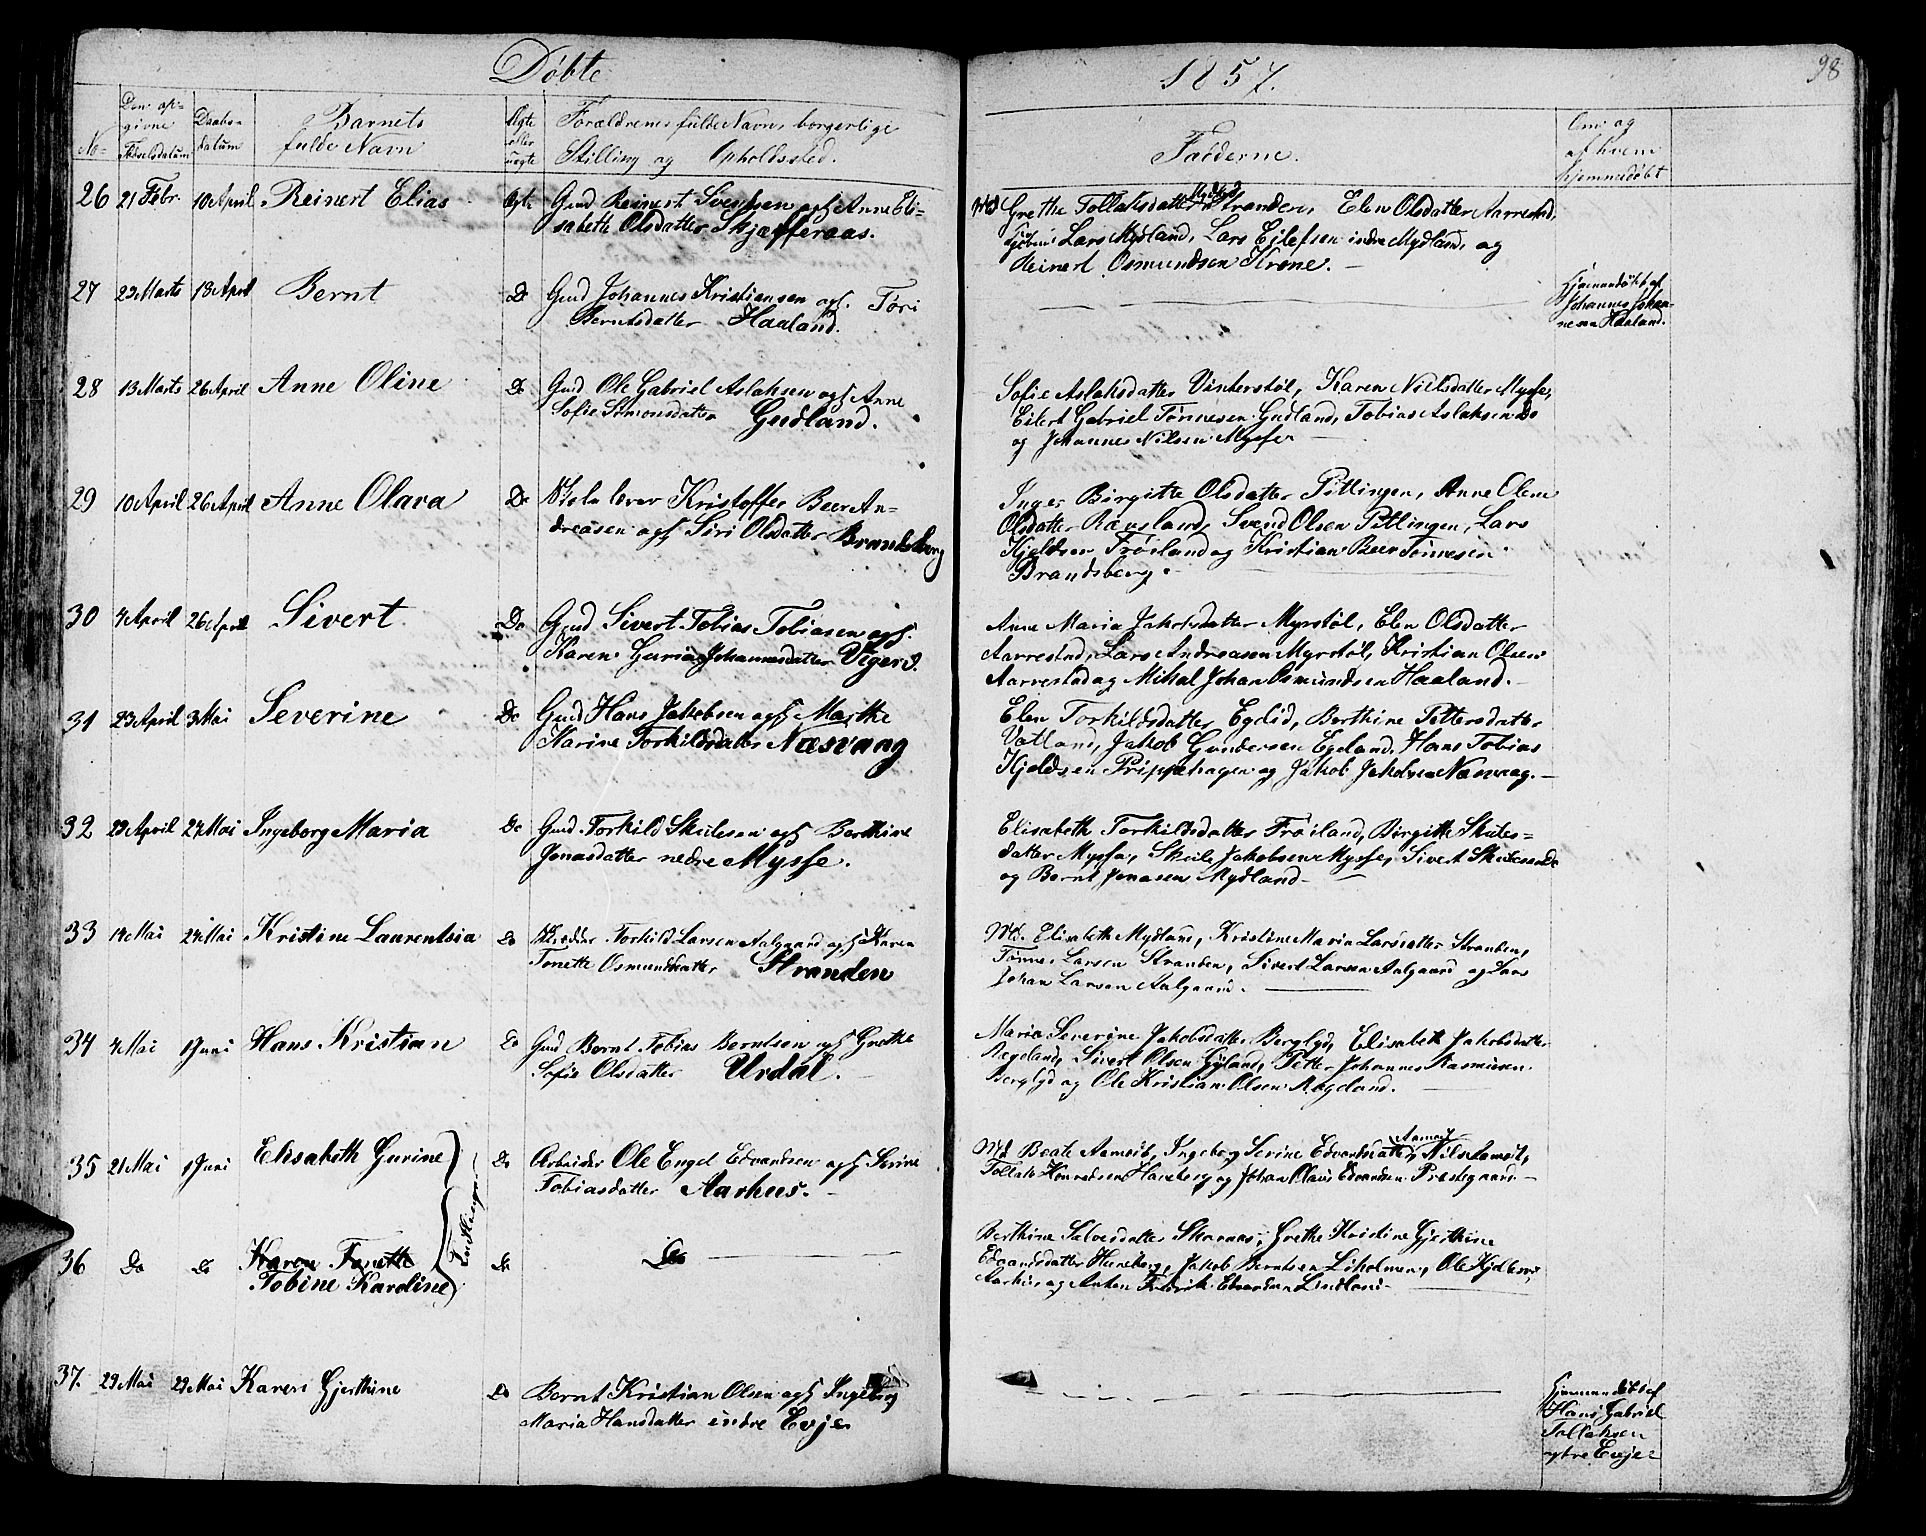 Døbte
1857.
98
No
Den opgivne Fødselsdatum
Daabsdatum
Barnets fulde Navn
Ægte eller uægte
Forældrenes fulde Navn, borgerlige Stilling og Opholdssted.
Fadderne.
Om og af hvem hjemmedøbt
26 21 Febr. 10 April Reinert Elias Ægte Gmd Reinert Svendsen og H Anne Eli-
sabeth Olsdatter Skjæfferaas.
Md Grethe Tollaksdatter Stranden, Elen Olsdatter Aarrestad,
Lars Mydland, Lars Eilefsen indre Mydland, og
Reinert Osmundsen Krone.
27 29 Marts 18 April Bernt Do Gmd Johannes Kristiansen og H. Tøri
Berntsdatter Haaland.
Hjemmedøbt af
Johannes Johan-
nesen Haaland.
28 13 Marts 26 April Anne Oline Do Gmd Ole Gabriel Aslaksen og H Anne
Sofie Simonsdatter Gudland.
Sofie Aslaksdatter Vinterstøl, Karen Nielsdatter Mysse,
Eilert Gabriel Tønnesen Gudland, Tobias Aslaksen Do
og Johannes Nilsen Mysse
29 10 April 26 April Anne Olava Do Skolelærer Kristoffer Beer An-
dreasen og H Siri Olsdatter Brandsberg
Inger Birgitte Olsdatter Pitlingen, Anne Olene
Olsdatter Rævsland, Svend Olsen Pitlingen, Lars
Kjeldsen Frøiland og Kristian Beer Tønnesen
Brandsberg.
30 4 April 26 April Sivert Do Gmd Sivert Tobias Tobiasen og H.
Karen Guria Johannesdatter Vigesd.
Anne Maria Jakobsdatter Myrstøl, Elen Olsdatter
Aarrestad, Lars Andreasen Myrstøl, Kristian Olsen
Aarrestad og Mikal Johan Osmundsen Haaland.
31 23 April 3 Mai Severine Do Gmd Hans Jakobsen og H Marthe
Karine Torkildsdatter Næsvaag
Elen Torkildsdatter Eglid, Berthine Pettersdatter
Vatland, Jakob Gundersen Egeland, Hans Tobias
Kjeldsen Prippehagen og Jakob Jakobsen Næsvaag.
32 29 April 24 Mai Ingeborg Maria Do Gmd Torkild Skulesen og H Berthine
Jonasdatter nedre Mysse.
Elisabeth Torkildsdatter Frøiland, Birgitte Skules-
datter Mysse, Skule Jakobsen Mysse, Sivert Skulesen do
og Bernt Jonasen Mydland
33 14 Mai 24 Mai Kristine Laurentsia Do Torkild Larsen Aalgaard og H Karen
Tonette Osmundsdatter Stranden
Md. Elisabeth Mydland, Kristine Maria Larsdatter Stranden,
Tønnes Larsen Stranden, Sivert Larsen Aalgaard og Lars
Johan Larsen Aalgaard.
34 4 Mai 1 Juni Hans Kristian Do Gmd Bernt Tobias Berntsen og H Grethe
Sofie Olsdatter Urdal.
Maria Severine Jakobsdatter Berglyd, Elisabeth Jakobsdatter
Regeland, Sivert Olsen Gyland, Petter Johannes Rasmusen
Berglyd og Ole Kristian Olsen Rægeland.
35 21 Mai 1 Juni Elisabeth Gurine Do Arbeider Ole Engel Edvardsen og H Serine
Tobiasdatter Aarhus.
Md Beate Aamodt, Ingeborg Serine Edvardsdatter Aamodt, Nils Aamodt,
Tollak Konradsen Haneberg og Johan Olaus Edvardsen Prestegaard.
36 Do Do Karen Tonette
Tobine Karoline Do Do
Tvillinger
Berthine Salvesdatter Skaraas, Grethe Kristine Gjerthine
Edvardsdatter Huneberg, Jakob Berntsen Liholmen, Ole Kjeldsen
Aarhus og Anton Fredrik Edvardsen Lindland
37. 29 Mai 29 Mai Karen Gjerthine Do Bernt Kristian Olsen og H Ingeborg
Maria Hansdatter indre Evje
Hjemmedøbt af
Hans Gabriel
Tollaksen
ytre Evje